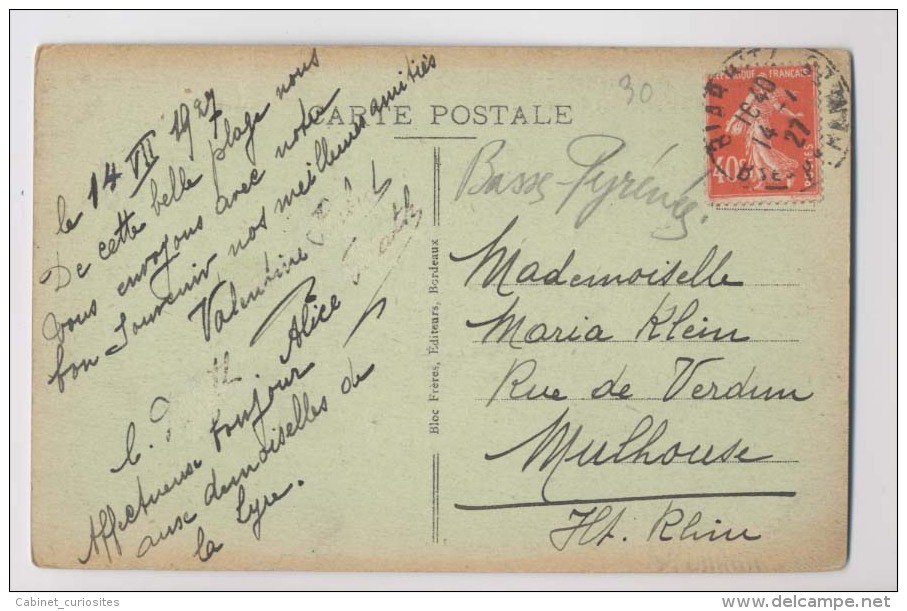 CARTE POSTALE
le 14 VII 1927
De cette belle plage nous
vous envoyons avec notre
bon souvenir nos meilleures amitiés
Valentine
Alice
Affectueuse bonjour
aux demoiselles de
la Lyre.
Bloc Frères, Éditeurs, Bordeaux
30
REPUBLIQUE FRANÇAISE
40c
16 40
14 - 7
27
Basses-Pyrénées.
Mademoiselle
Maria Klein
Rue de Verdun
Mulhouse
Ht. Rhin
Cabinet_curiosites
www.delcampe.net